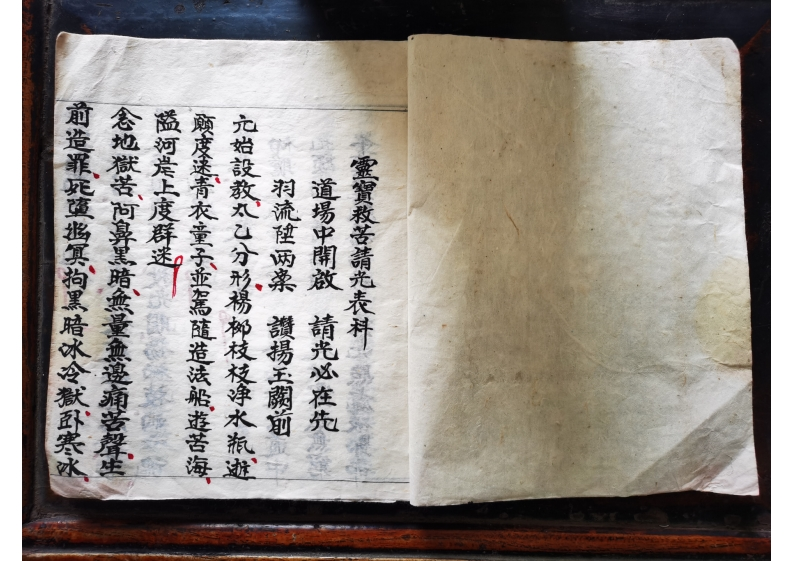 靈寶救苦請光表科
道場中開啟　請光必在先
羽流陞兩案　讚揚玉闕前
元始設教太乙分形楊柳枝枝净水瓶逝
願度迷青衣童子並駕隨造法船遊苦海
隘河岸上度群迷
念地獄苦阿鼻黑暗無量無邊痛苦聲生
前造罪死墮幽冥拘黑暗冰冷獄卧寒冰